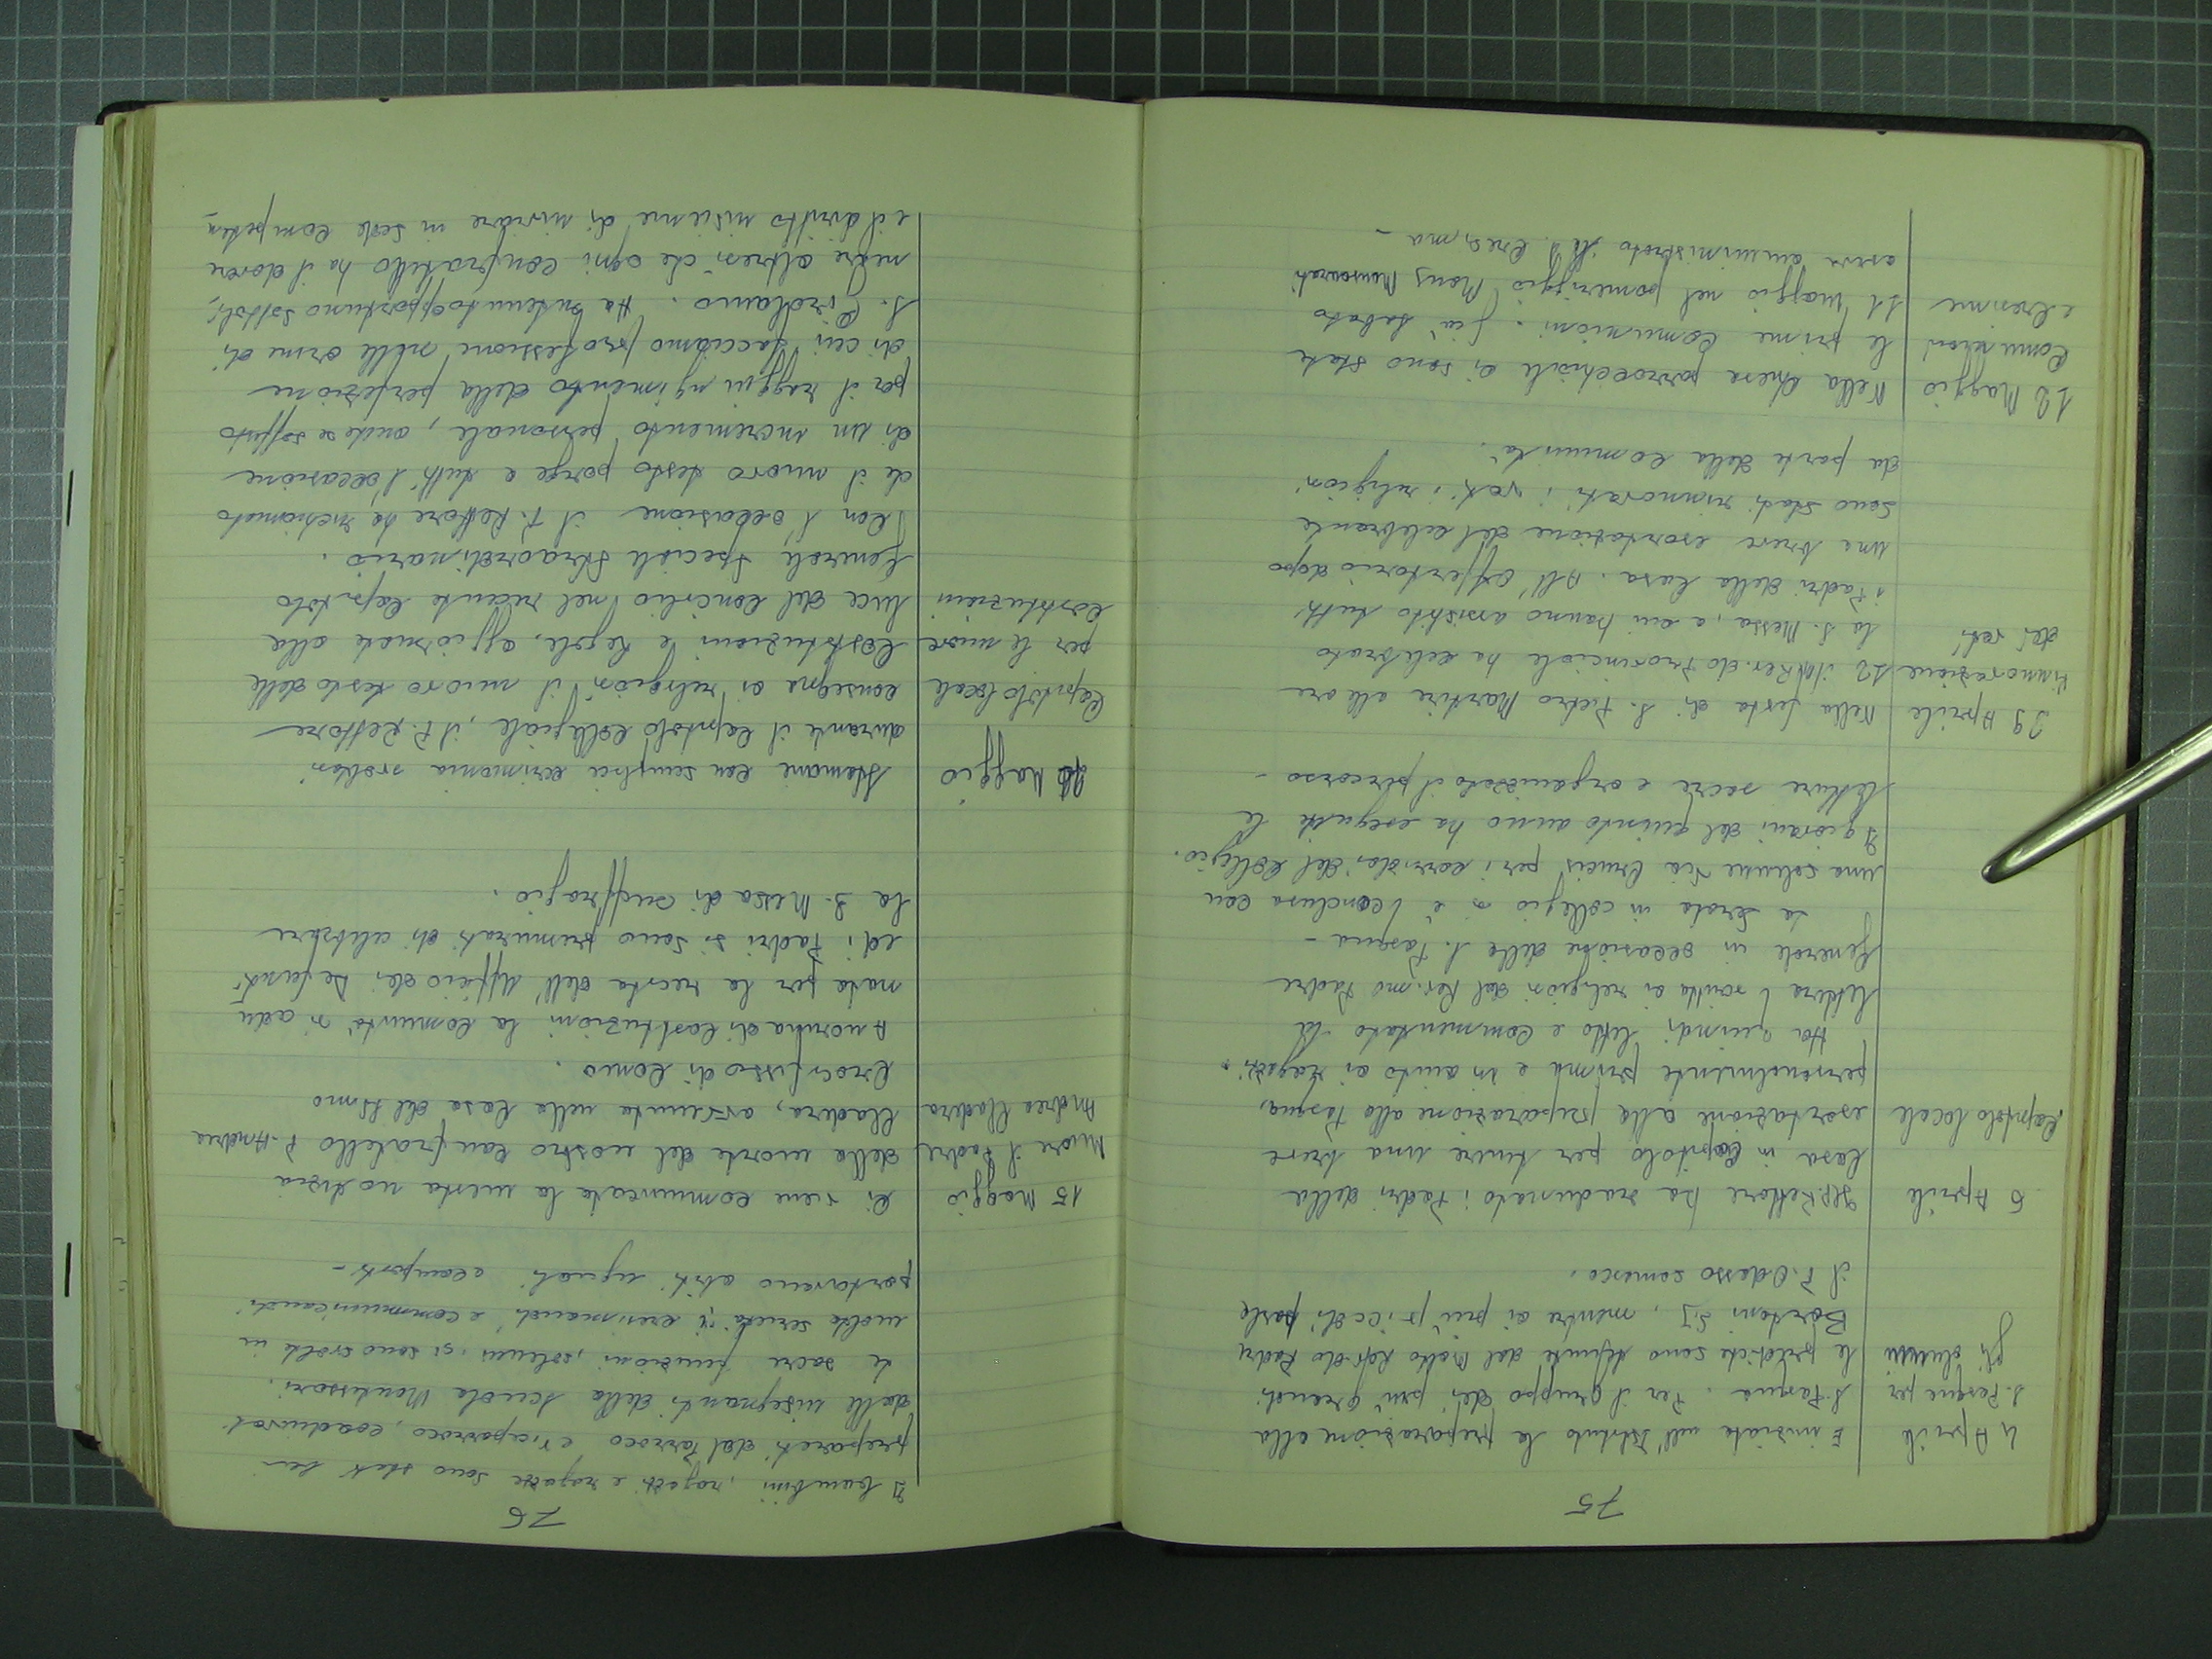 75
4 Aprile
S. Pasqua per
gli alunni
È iniziata nell'Istituto la preparazione alla
S. Pasqua. Per il gruppo dei più grandi
le prediche sono tenute dal Molto Rev.do Padre
Bortoni S.J, mentre ai più piccoli parla
il P. Odasso somasco.
6 Aprile
Capitolo locale
Il P. Rettore ha radunato i Padri della
Casa in Capitolo per tenere una breve
esortazione alla preparazione alla Pasqua,
personalmente prima e in aiuto ai ragazzi.
Ha quindi letto e commentato la
lettera scritta ai religiosi dal Rev.mo Padre
Generale in occasione della S. Pasqua -
La serata in collegio si è conclusa con
una solenne Via Crucis per i corridoi del Collegio.
I giovani del quinto anno ha eseguito le
letture sacre e organizzato il percorso -
29 Aprile
Rinnovazione
dei voti
Nella festa di S. Pietro Martire alle ore
12 il M. Rev.do Provinciale ha celebrato
la S. Messa, a cui hanno assistito tutti
i Padri della Casa. All'offertorio dopo
una breve esortazione del celebrante
sono stati rinnovati i voti religiosi
da parte della Comunità.
12 Maggio
Comunioni
e Cresime
Nella Chiesa parrocchiale ci sono state
le prime Comunioni. Già sabato
11 Maggio nel pomeriggio Mons
aveva amministrato la S. Cresima -
76
I bambini, ragazzi e ragazze sono stati ben
preparati dal Parroco e viceparroco, coadiuvati
dalle insegnanti della Scuola Montessori.
Le sacre funzioni, solenni, si sono svolte in
molta serietà; i cresimandi e comunicandi
portavano abiti uguali e composti -
15 Maggio
Muore il Padre
Andrea Cladera
Ci viene comunicata la mesta notizia
della morte del nostro confratello P. Andrea
Cladera, avvenuta nella Casa del SS.mo
Crocifisso di Como.
A norma di Costituzioni la Comunità si adu
nata per la recita dell'Ufficio dei Defunti
ed i Padri si sono premurati di celebrare
la S. Messa di suffragio.
Maggio
Capitolo locale
per le nuove
Costituzioni
Stamane con semplice cerimonia svoltasi
durante il Capitolo Collegiale, il P. Rettore
consegna ai religiosi il nuovo testo delle
Costituzioni e Regole, aggiornate alla
luce del Concilio nel recente Capitolo
Generale Speciale Straordinario.
Con l'occasione il P. Rettore ha richiamato
che il nuovo testo porge a tutti l'occasione
di un incremento personale, anche se soffuto
per il raggiungimento della perfezione
di cui facciamo professione nelle orme di
S. Girolamo. Ha ritenuto opportuno sottoli,
neare altresì che ogni Confratello ha il dovere
e il diritto insieme di inviare in sede competen,